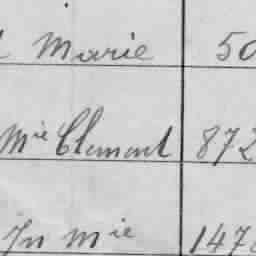 Marie 50
Mie Clement 872
Jn Mie 147